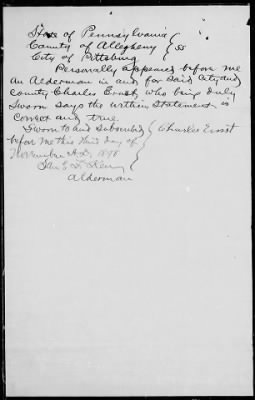 State of Pennsylvania
County of Allegheny } ss
City of Pittsburg
Personally appeared before me
an Alderman in and for said City and
County Charles Ernst, who being duly
Sworn says the within Statement is
Correct and true.
Sworn to and Subscribed { Charles Ernst
before me this third day of
November A.D. 1898
Alderman